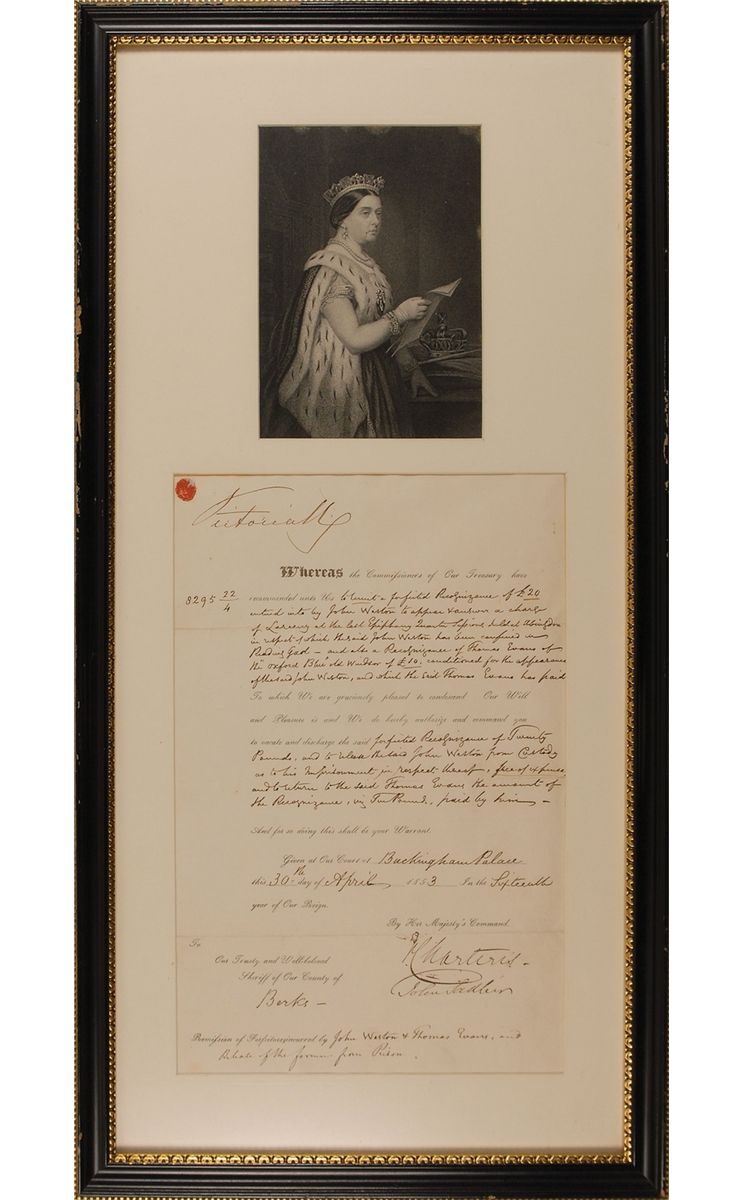 Victoria R
Whereas the Commissioners of Our Treasury have
8295 22/4
recommended unto Us to remit a forfeited Recognizance of £20
entered into by John Weston to appear & answer a charge
of Larceny at the last Epiphany Quarter Sessions held at Abingdon
in respect of which the said John Weston has been confined in
Reading Gaol – and also a Recognizance of Thomas Evans of
the Oxford Blue Old Windsor of £10, conditioned for the appearance
of the said John Weston, and which the said Thomas Evans has paid
To which We are graciously pleased to condescend Our Will
and Pleasure is and We do hereby authorize and command you
to vacate and discharge the said forfeited Recognizance of Twenty
Pounds, and to release the said John Weston from Custody
as to his Imprisonment in respect thereof, free of expense,
and to return to the said Thomas Evans the amount of
the Recognizance, viz Ten Pounds, paid by him –
And for so doing this shall be your Warrant.
Given at Our Court at Buckingham Palace
this 30th day of April 1853 In the Sixteenth
year of Our Reign.
By Her Majesty's Command.
To
Our Trusty and Wellbeloved
Sheriff of Our County of
Berks –
Charteris –
John
Remission of Forfeiture incurred by John Weston & Thomas Evans, and
Release of the former from Prison.